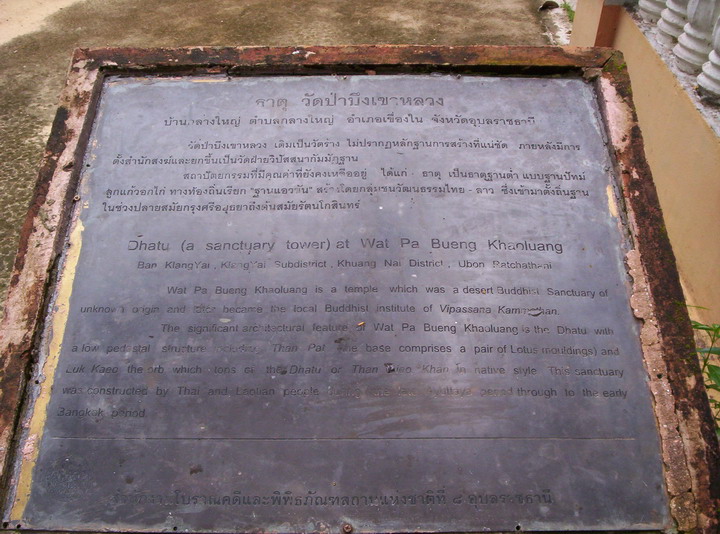 ธาตุ วัดป่าบึงเขาหลวง
บ้านกลางใหญ่ ตำบลกลางใหญ่ อำเภอเขื่องใน จังหวัดอุบลราชธานี
วัดป่าบึงเขาหลวง เดิมเป็นวัดร้าง ไม่ปรากฏหลักฐานการสร้างที่แน่ชัด ภายหลังมีการ
ตั้งสำนักสงฆ์และยกขึ้นเป็นวัดฝ่ายวิปัสสนากัมมัฏฐาน
สถาปัตยกรรมที่มีคุณค่าที่ยังคงเหลืออยู่ ได้แก่ ธาตุ เป็นธาตุฐานต่ำ แบบฐานปัทม์
ลูกแก้วอกไก่ ทางท้องถิ่นเรียก "ฐานแอวขัน" สร้างโดยกลุ่มชนวัฒนธรรมไทย - ลาว ซึ่งเข้ามาตั้งถิ่นฐาน
ในช่วงปลายสมัยกรุงศรีอยุธยาถึงต้นสมัยรัตนโกสินทร์
Dhatu (a sanctuary tower) at Wat Pa Bueng Khaoluang
Ban KlangYai , KlangYai Subdistrict , Khuang Nai District , Ubon Ratchathani
Wat Pa Bueng Khaoluang is a temple which was a desert Buddhist Sanctuary of
unknown origin and later became the local Buddhist institute of Vipassana
The significant architectural feature of Wat Pa Bueng Khaoluang is the Dhatu with
a low pedestal structure Than Pat (the base comprises a pair of Lotus mouldings) and
Luk Kaeo the orb which tons of the Dhatu or Than Khan in native style This sanctuary
was constructed by Thai and Laotian people period through to the early
Bangkok period
สำนักงานโบราณคดีและพิพิธภัณฑสถานแห่งชาติที่ ๘ อุบลราชธานี